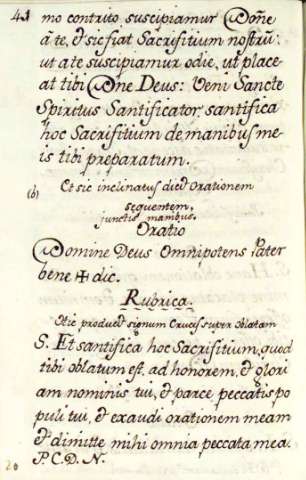 41 mo contrito, suscipiamur Dom̃e
a te, & sic fiat Sacrifitium nostrũ:
ut a te suscipiamur odie, ut place-
at tibi Dñe Deus: Veni Sancte
Spiritus Santificator, santifica
hoc Sacrifitium de manibus me-
is tibi preparatum.
(b) Et sic inclinatus dicit Orationem
sequentem,
junctis manibus.
Oratio
Domine Deus Omnipotens Pater
bene ✠ dic.
Rubrica.
Hic producit signum Crucis super Oblatam
S. Et santifica hoc Sacrifitium, quod
tibi oblatum est, ad honorem, & glori
am nominis tui, & parce peccatis po
puli tui, & exaudi orationem meam
& dimitte mihi omnia peccata mea.
P. C. D. N.
20